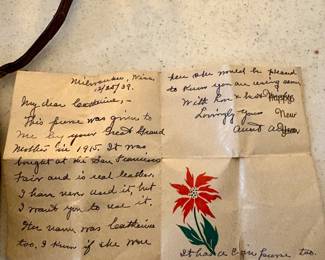 Milwaukee, Wisc.
12/25/39.
My dear Catherine; -
This purse was given to
me by your Great Grand
Mother in 1915. It was
bought at the San Francisco
Fair and is real leather.
I have never used it, but
I want you to use it.
Her name was Catherine
too. I know if she were
here she would be pleased
to know you are using same
With love & best
Happy
New
Lovingly yours
Aunt
It has a coin purse too.